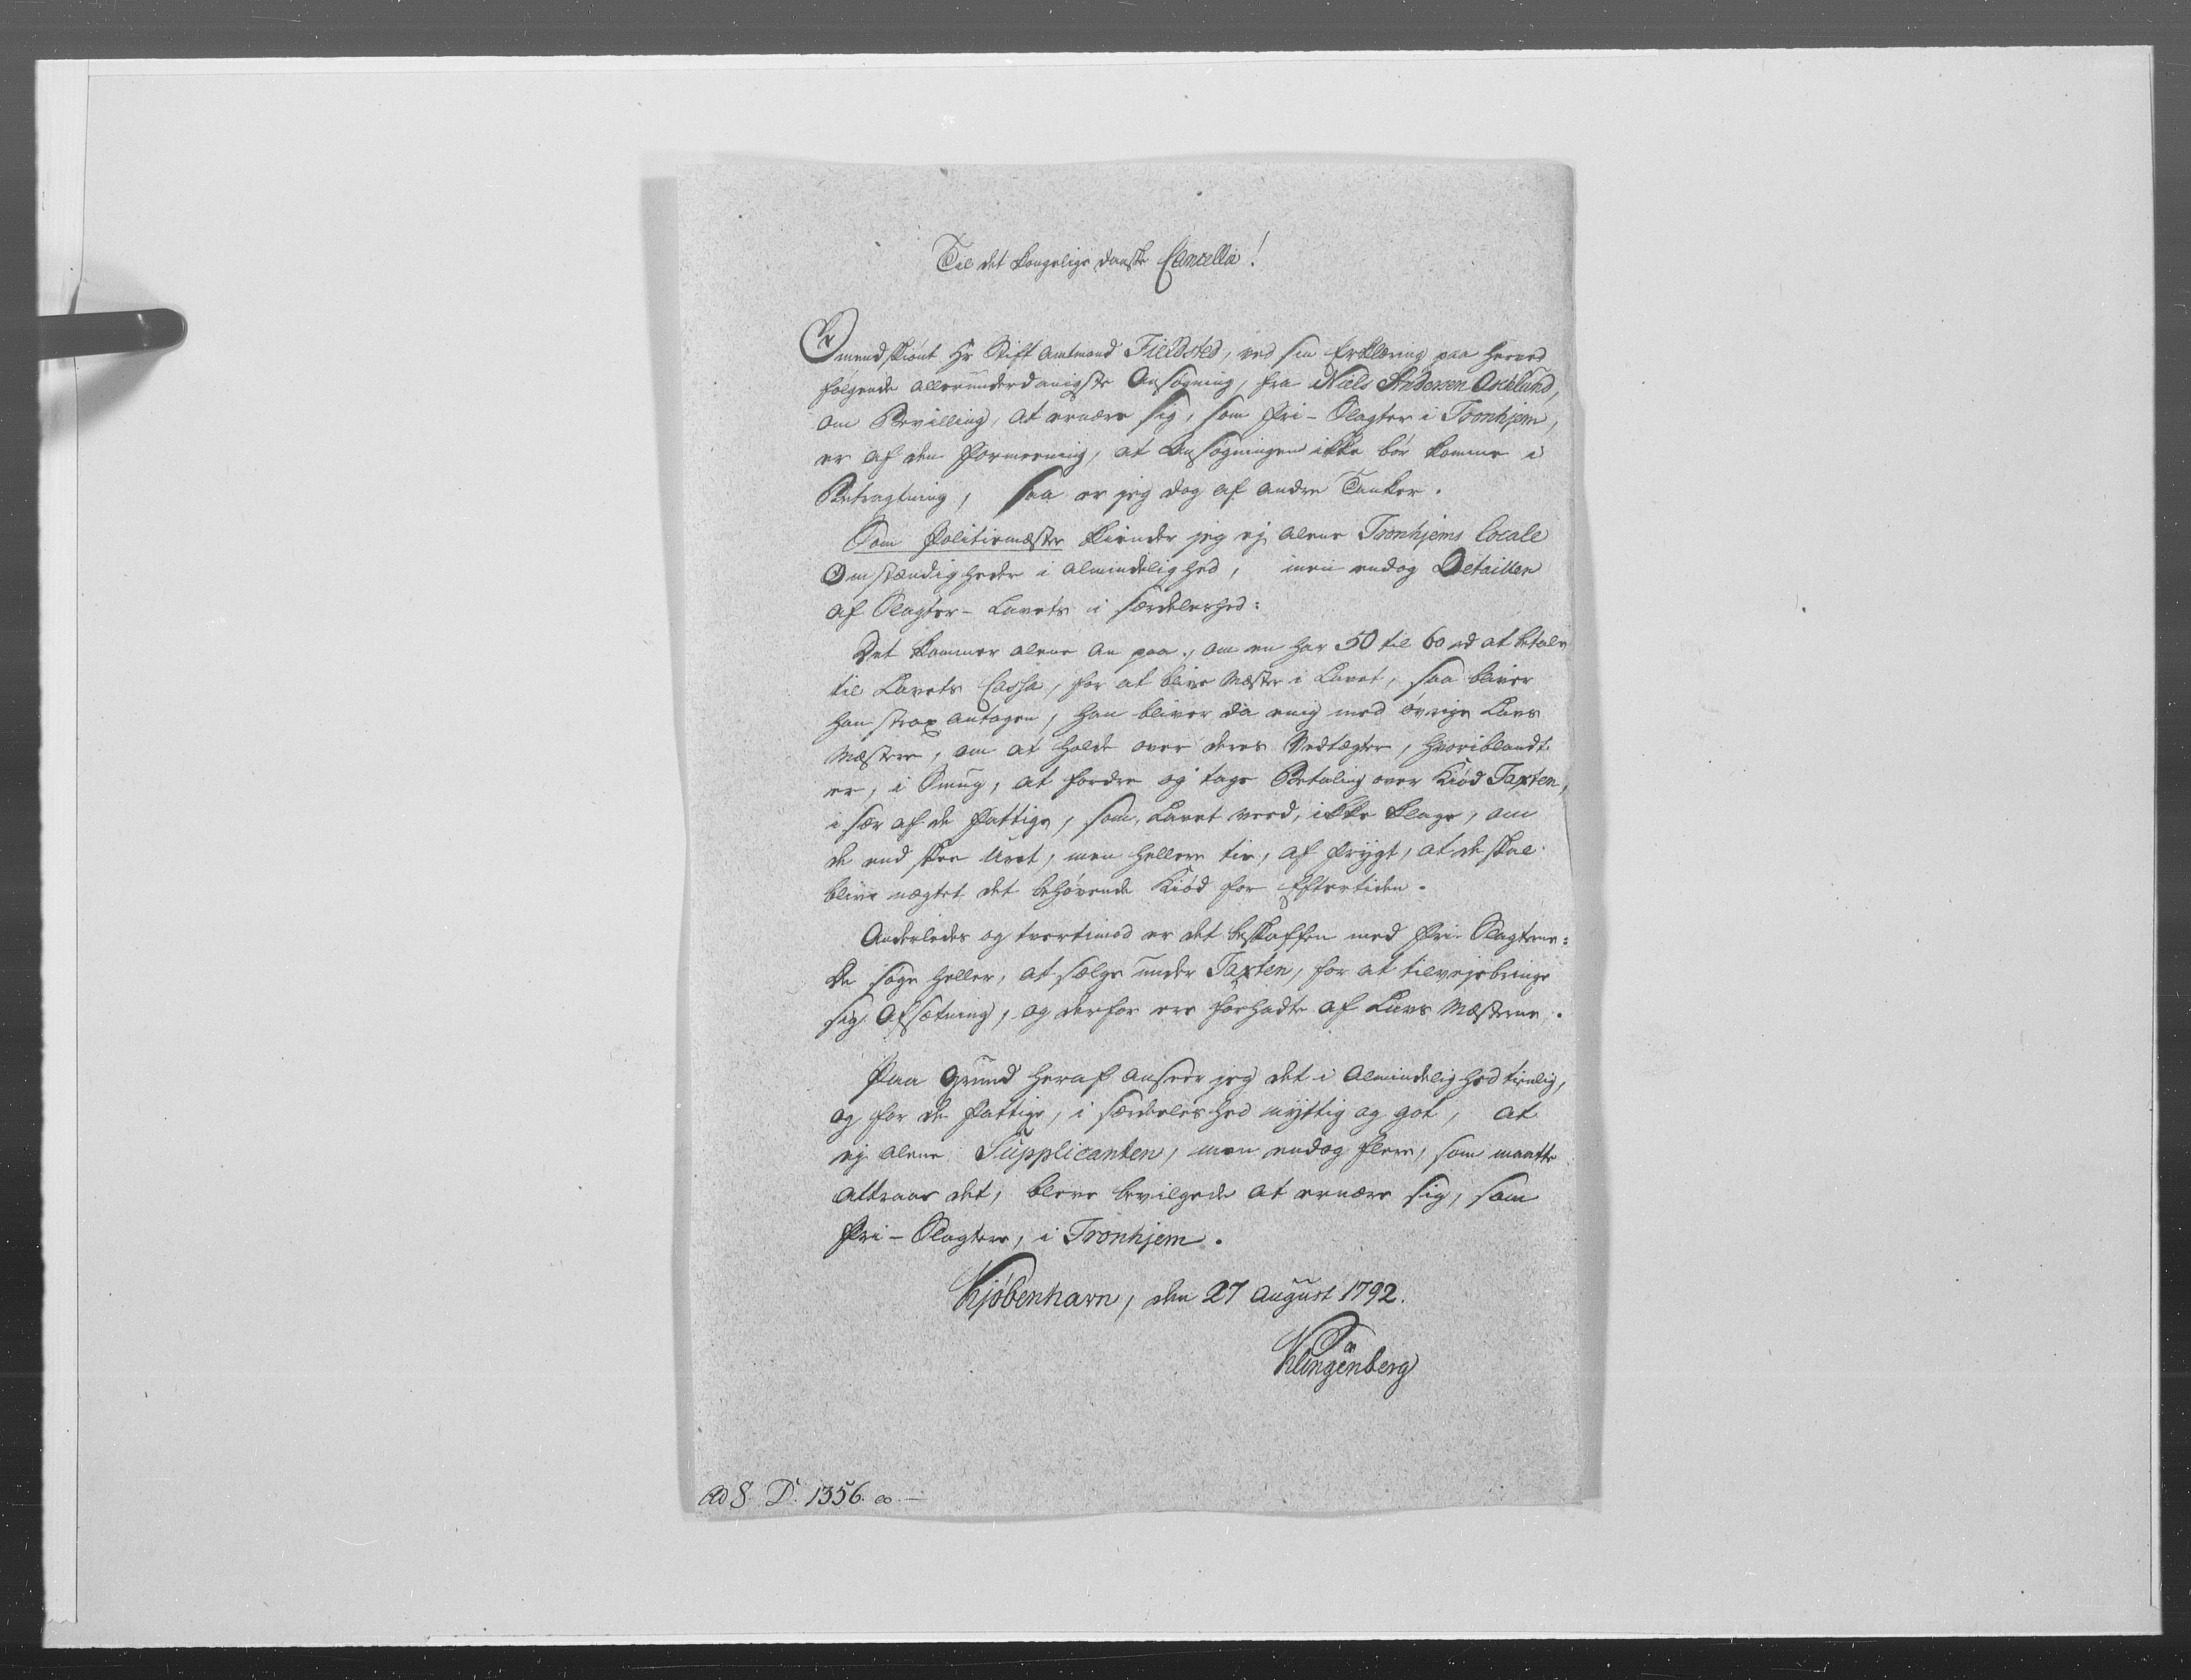 Til det kongelige danske Cancellie!
Omendskiønt Hr Stift Amtmand Fieldsted, ved sin Erklæring paa herved
følgende allerunderdanigste Ansøgning, fra Niels Andersen Aschlund,
om Bevilling, at ernære sig, som Fri-Slagter i Tronhjem,
er af den Formeening, at Ansøgningen ikke bør komme i
Betragtning, saa er jeg dog af andre Tanker.
Som Politiemæster kiender jeg ej alene Tronhjems locale
Omstændigheder i Almindelighed, men endog Detaillen
af Slagter-Lavets i særdeleshed:
Det kommer alene an paa, om en har 50 til 60 rd at betale
til Lavets Cassa, for at blive Mæster i Lavet, saa bliver
han strax antagen, han bliver da enig med øvrige Lavs
Mæstere, om at holde over deres Vedtægter, hvoriblandt
er, i Smug, at fordre og tage Betaling over Kiød Taxten,
i sær af de Fattige, som, Lavet veed, ikke klage, om
de end skee Uret, men hellere tie, af Frygt, at de skal
blive nægtet det behøvende Kiød for Eftertiden.
Anderledes og tvertimod er det beskaffen med Fri-Slagterne:
De søge heller, at sælge under Taxten, for at tilvejebringe
sig Afsætning, og derfor ere forhadte af Lavs Mæsterne.
Paa Grund heraf anseer jeg det i Almindelighed tienlig,
og for de Fattige, i særdeleshed nyttig og got, at
ej alene Supplicanten, men endog flere, som maatte
attraae det, bleve bevilgede at ernære sig, som
Fri-Slagtere, i Tronhjem.
Kjøbenhavn, den 27 August 1792.
Klingenberg
Ad S. D. 1356.